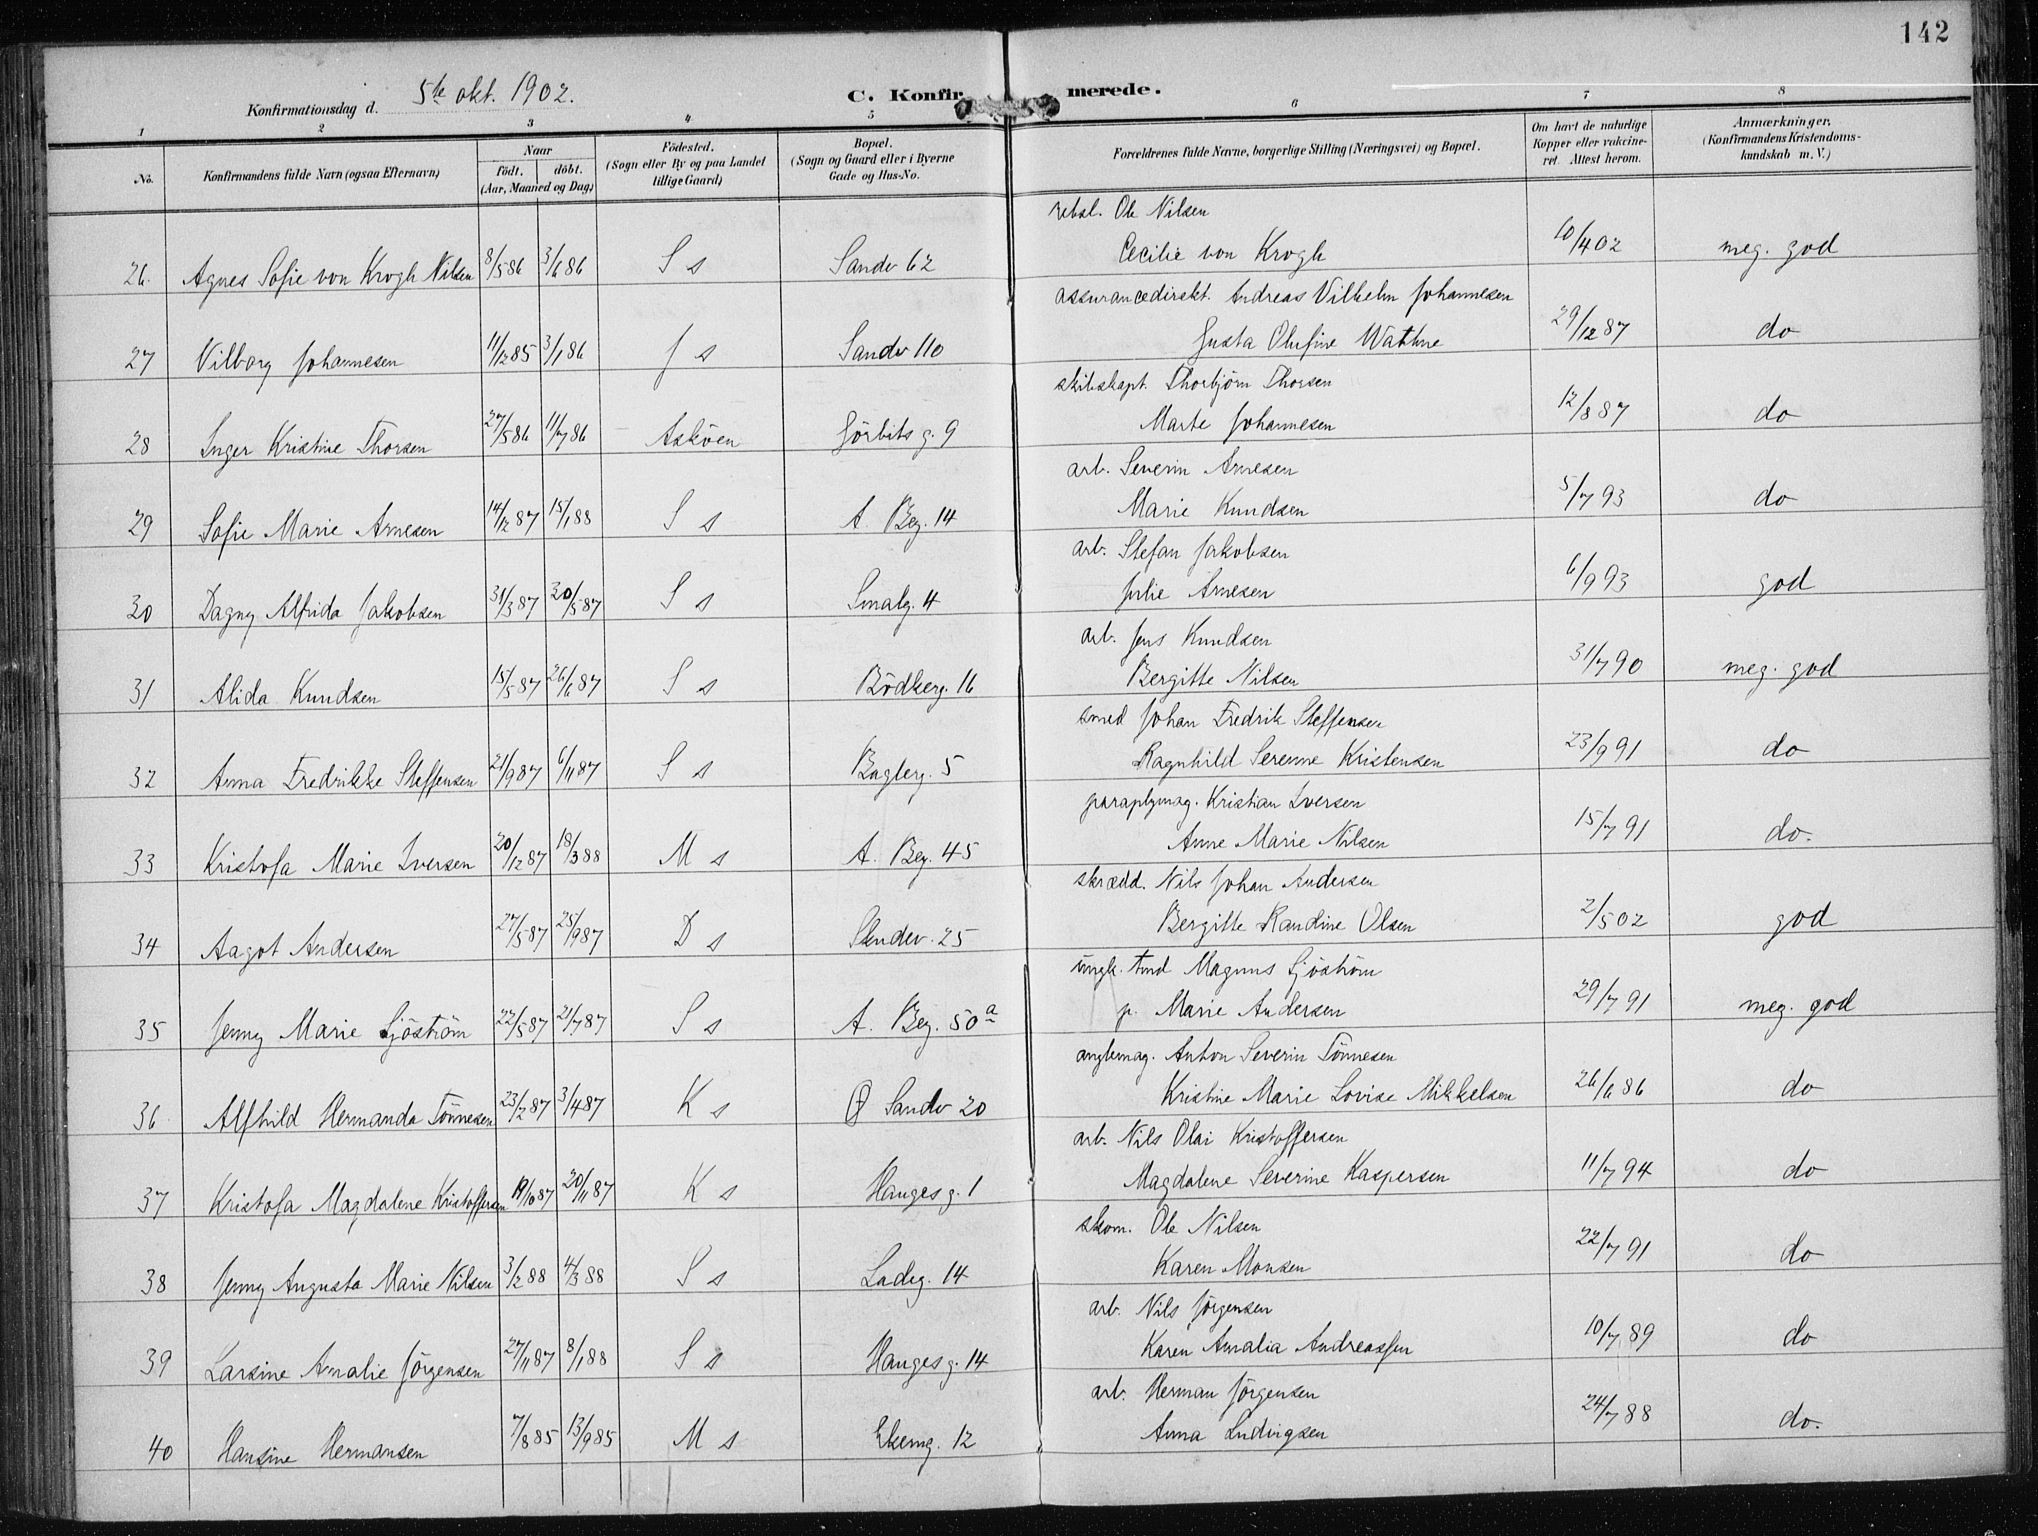 142
Konfirmationsdag d. 5te okt. 1902.
C. Konfirmerede.
1 2 3 4 5 6 7 8
No. Konfirmandens fulde Navn (ogsaa Efternavn) Naar født. døbt. (Aar, Maaned og Dag) Fødested. (Sogn eller By og paa Landet tillige Gaard) Bopæl. (Sogn og Gaard eller i Byerne Gade og Hus-No. Forældrenes fulde Navne, borgerlige Stilling (Næringsvei) og Bopæl. Om havt de naturlige Kopper eller vakcineret. Attest herom. Anmærkninger. (Konfirmandens Kristendomskundskab m. V.)
rebsl. Ole Nilsen
26. Agnes Sofie von Krogh Nilsen 8/5 86 3/6 86 S s Sandv 62 Cecilie von Krogh 10/4 02 meg. god
assurancedirekt. Andreas Vilhelm Johannesen
27 Vilborg Johannesen 11/12 85 3/1 86 J s Sandv 110 Gusta Olufine Wathne 29/12 87 do
skibskapt. Thorbjörn Thorsen
28 Inger Kristine Thorsen 27/5 86 11/7 86 Asköen Görbits g. 9 Marte Johannesen 12/8 87 do
arb. Severin Arnesen
29 Sofie Marie Arnesen 14/12 87 15/1 88 S s A. Beg. 14 Marie Knudsen 5/7 93 do
arb. Stefan Jakobsen
30 Dagny Alfrida Jakobsen 31/3 87 20/5 87 S s Smalg. 4 Julie Arnesen 6/9 93 god
arb. Jens Knudsen
31 Alida Knudsen 15/5 87 26/6 87 S s Bödkerg. 16 Bergitte Nilsen 31/7 90 meg. god
smed Johan Fredrik Steffensen
32 Anna Fredrikke Steffensen 21/9 87 6/11 87 S s Baglerg. 5 Ragnhild Serenne Kristensen 23/9 91 do
paraplymag. Kristian Iversen
33 Kristofa Marie Iversen 20/12 87 18/3 88 M s A. Beg. 45 Anne Marie Nilsen 15/7 91 do.
skrædd. Nils Johan Andersen
34 Aagot Andersen 27/5 87 25/9 87 D s Stendev. 25 Bergitte Randine Olsen 2/5 02 god
ungk. Magnus Sjöström
35 Jenny Marie Sjöström 22/5 87 21/7 87 S s A. Beg. 50a p. Marie Andersen 29/7 91 meg. god
Anton Severin Tönnesen
36 Alfhild Hermanda Tönnesen 23/2 87 3/4 87 K s Ø Sandv 20 Kristine Marie Lovise Mikkelsen 26/6 86 do
arb. Nils Olai Kristoffersen
37 Kristofa Magdalene Kristoffersen 19/10 87 20/11 87 K s Hauges g. 1 Magdalene Severine Kaspersen 11/7 94 do
skom. Ole Nilsen
38 Jenny Augusta Marie Nilsen 3/2 88 4/3 88 S s Ladeg. 14 Karen Monsen 22/7 91 do
arb. Nils Jörgensen
39 Larsine Amalie Jörgensen 27/11 87 8/1 88 S s Hauges g. 14 Karen Amalia Andreassen 10/7 89 do
arb. Herman Jörgensen
40 Hansine Hermansen 7/8 85 13/9 85 M s Ekerng. 12 Anna Ludvigsen 24/7 88 do.